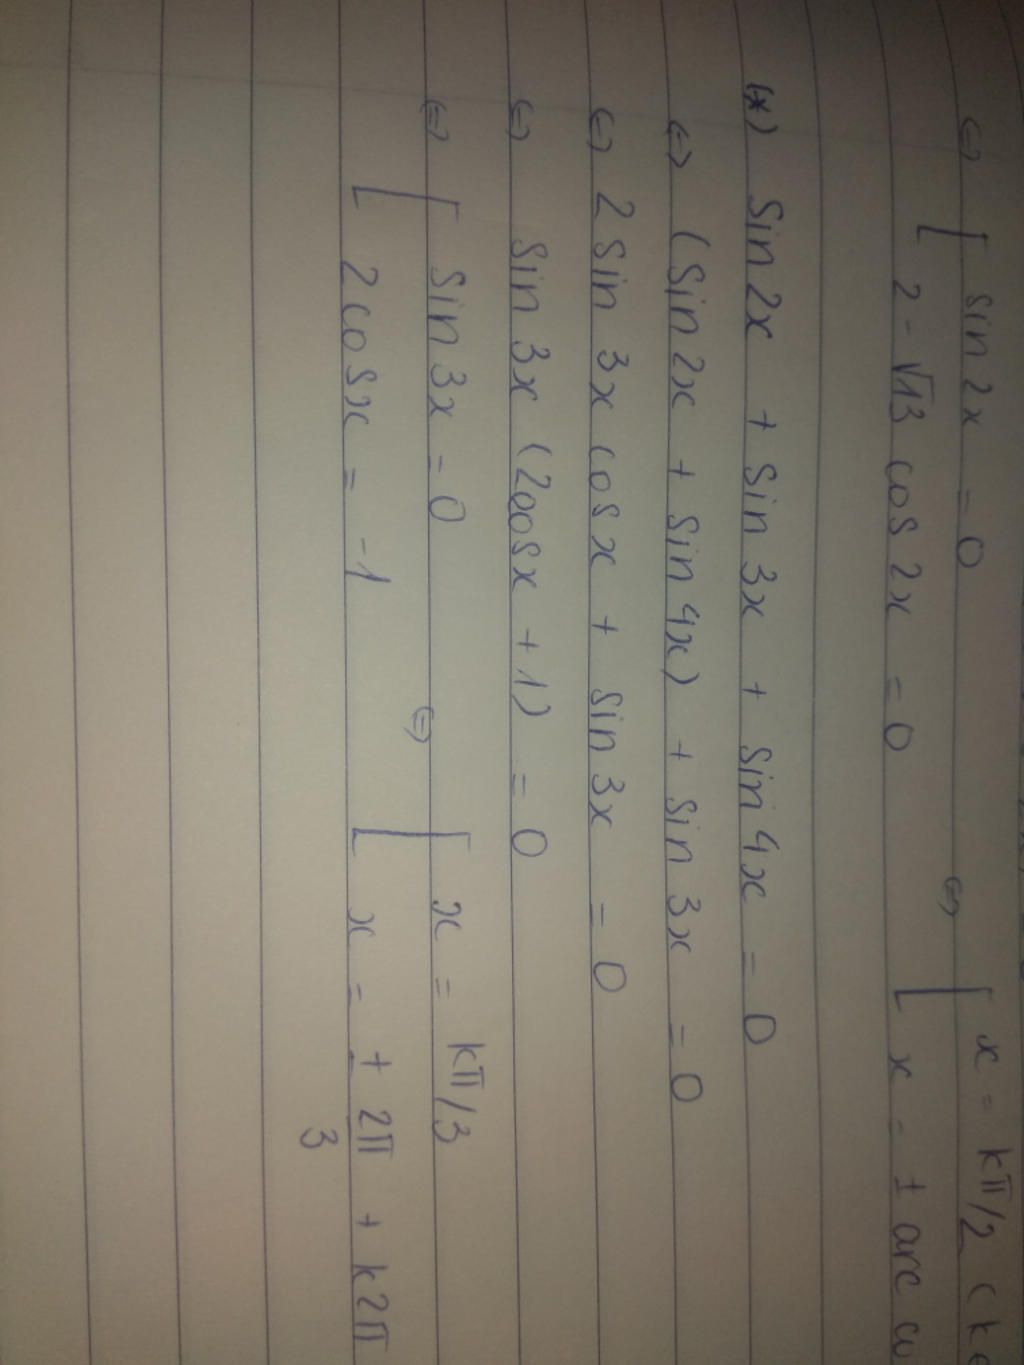 ⇔ [ sin 2x = 0 ⇔ [ x = kπ/2 (k
2 - √13 cos 2x = 0 x = ± arc
(*) Sin 2x + Sin 3x + Sin 4x = 0
⇔ (Sin 2x + Sin 4x) + Sin 3x = 0
⇔ 2 Sin 3x cos x + Sin 3x = 0
⇔ Sin 3x (2cosx + 1) = 0
⇔ [ Sin 3x = 0 ⇔ [ x = kπ/3
2 cosx = -1 x = ± 2π/3 + k2π